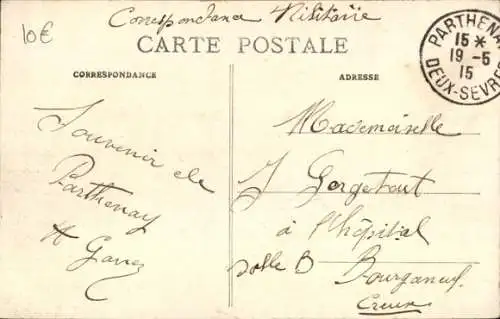 10€
Correspondance Militaire
CARTE POSTALE
PARTHENAY
15 *
19 -5
15
DEUX-SEVRES
CORRESPONDANCE
ADRESSE
Souvenir de
Parthenay
Mademoiselle
J
à l'hôpital
salle B
Bourganeuf
Creuse